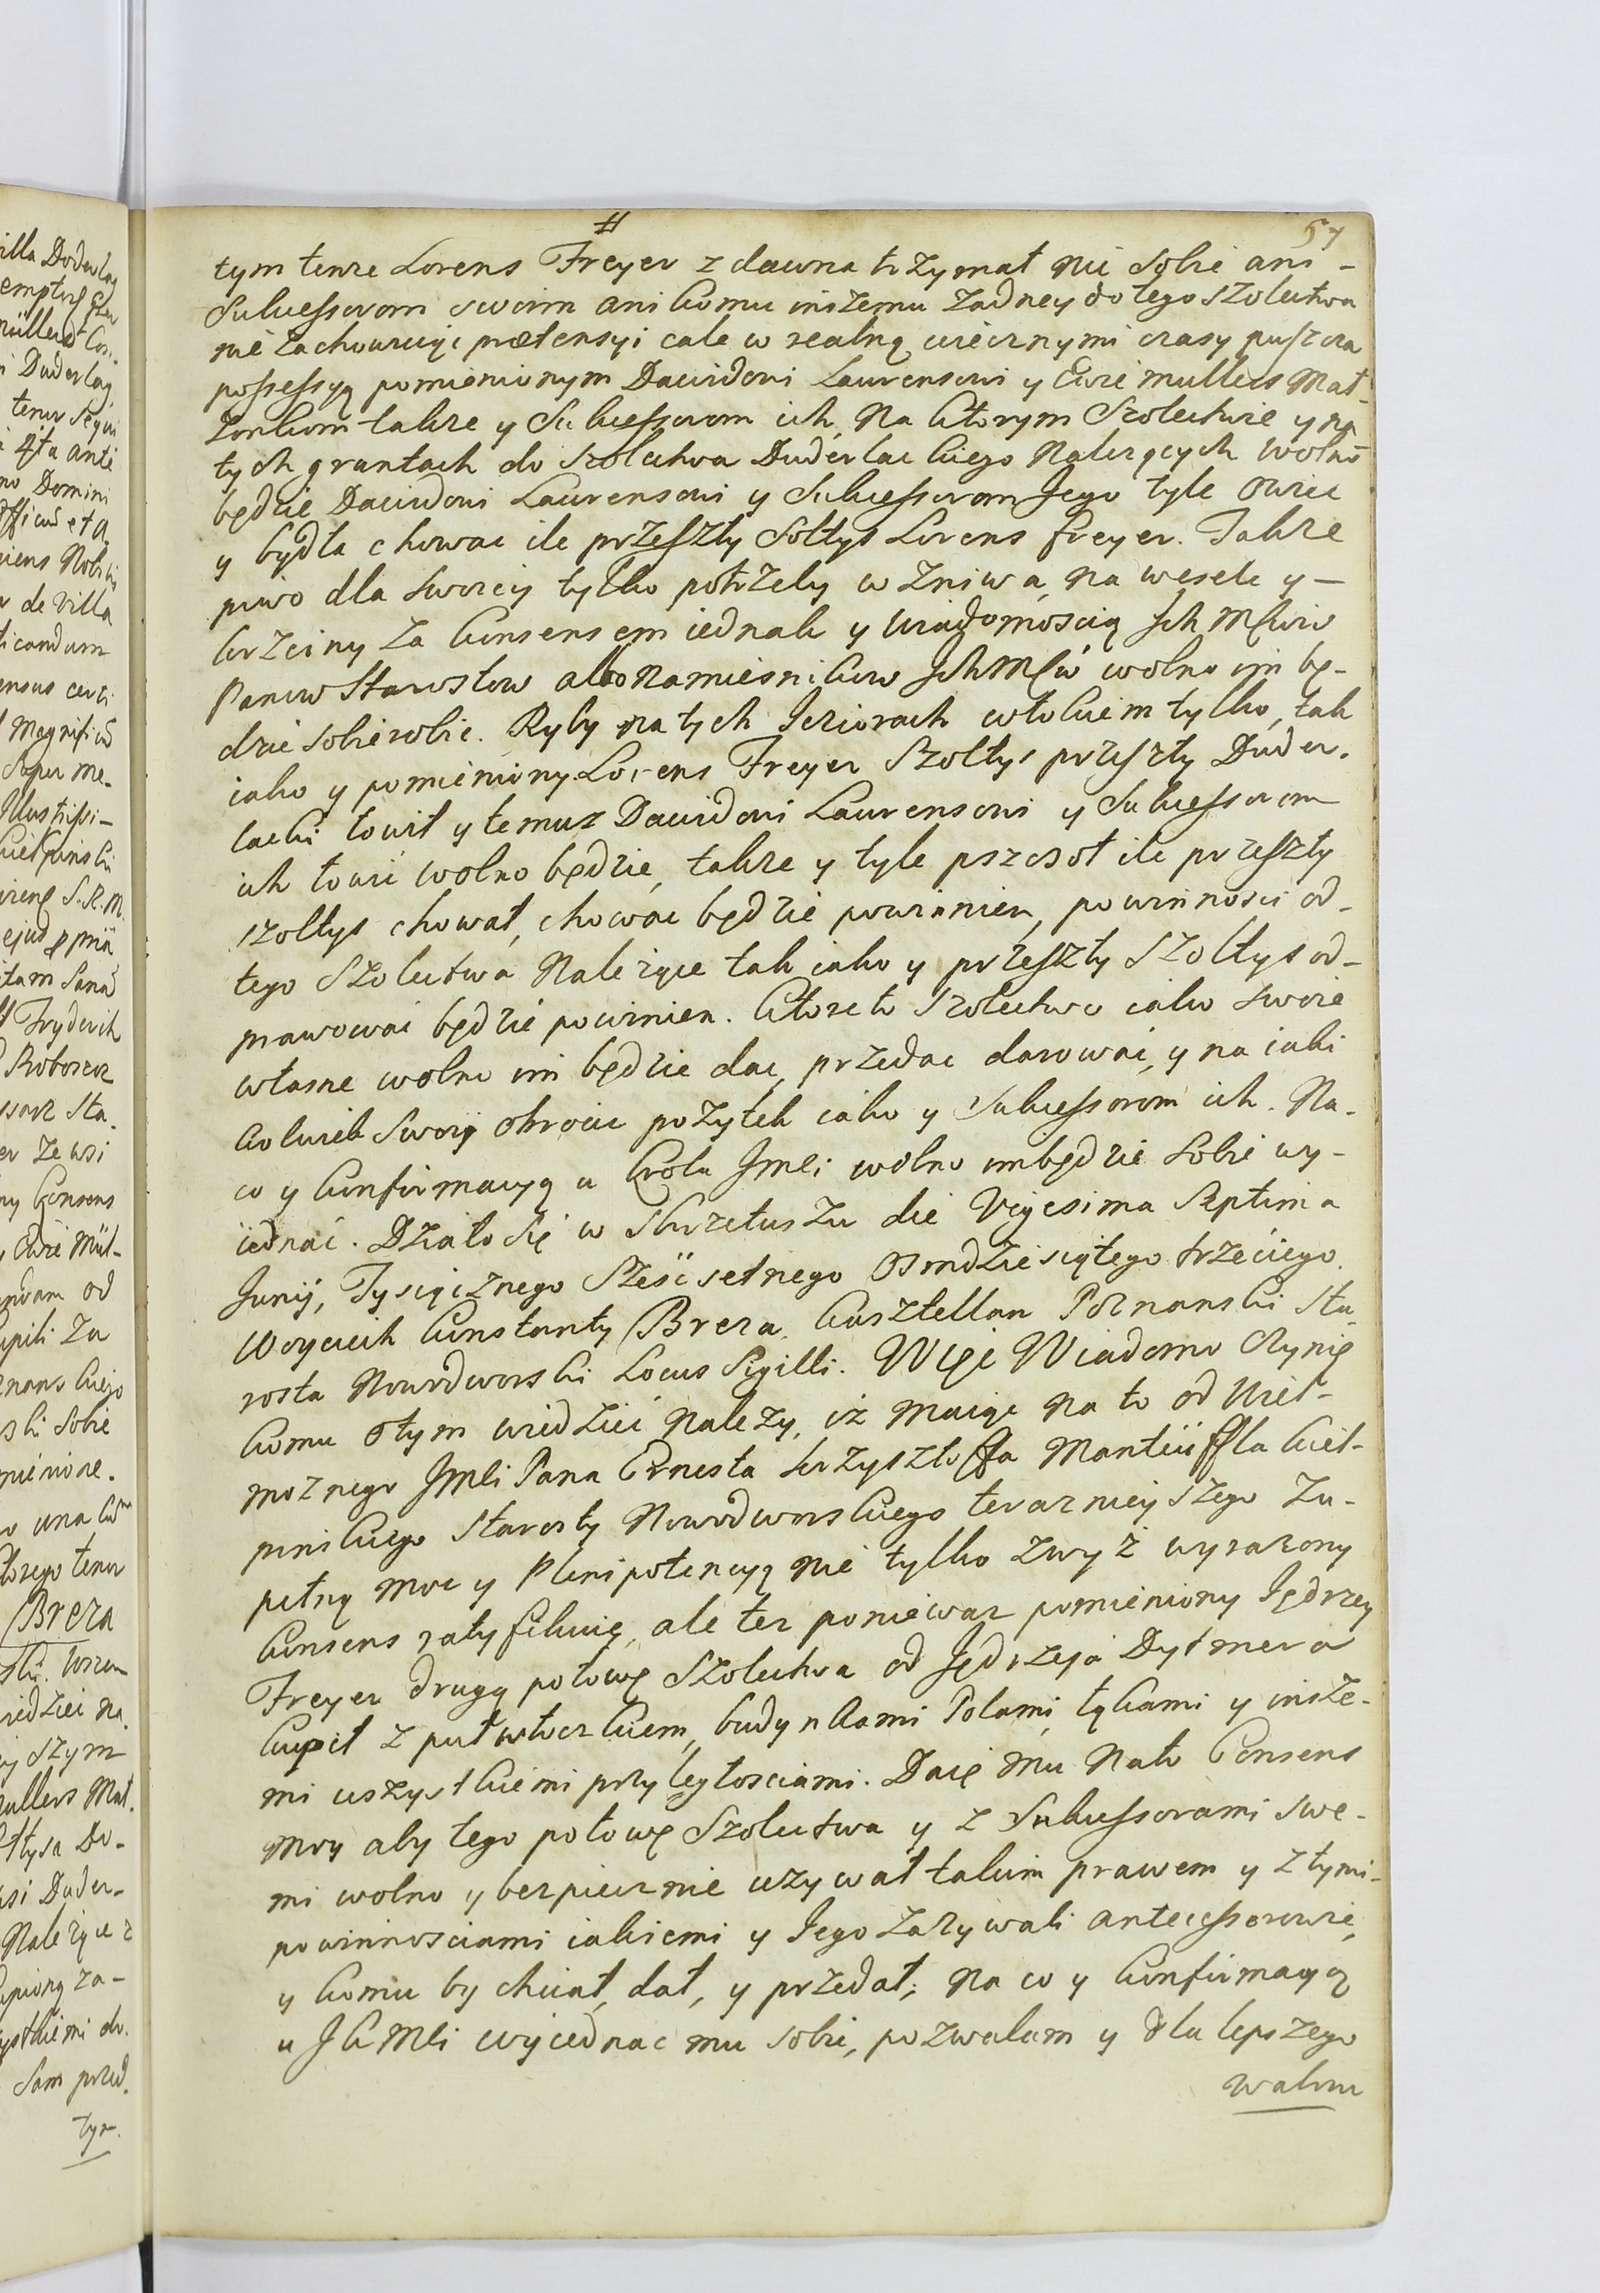 illa Doderlag
emptus
müllerd
i Duderlag
tenor sequi
qta ante
no Domini
officio et A
de Villa
ticandum
ensus certi
Magnifico
Super me-
Illustrissi-
S. R. M.
Frydrich
Proboszcz
er ze wsi
ny Consens
Ewie Mül-
od
upili za
znanskiego
ski sobie
mienione.
torego tenor
(Breza
wiedziec na
szym
mullers Mał.
łtysa Du-
wsi Duder-
Należące z
upioną za-
zystkiemi do.
Sam przed.
tym.
57
tym tenze Lorens Freyer z dawna trzymał nie sobie ani -
Sukcessorom swoim ani komu inszemu zadney do tego szolectwa
nie zachowuiąc prætensyi cale w realną wiecznymi czasy puszcza
possessyą pomienionym Dawidowi Laurensowi y Ewie mullers Mał-
zonkom takze y Sukcessorom ich, Na ktorym Szolectwie y na
tych gruntach do szolectwa Duderlackiego Nalezących wolno
będzie Dawidowi Laurensowi y Sukcessorom Jego tyle owiec
y bydła chowac ile przeszły Sołtys Lorens freyer. Takze
piwo dla swoiey tylko potrzeby w zniwa, na wesele y -
krzciny za konsensem iednak y wiadomoscią Jch Mściw
Panow Starostow albo Namiesnikow JchMściw wolno im bę-
dzie sobie robic. Ryby na tych Jeziorach włokiem tylko, tak
iako y pomieniony Lorens Freyer Szołtys przeszły Duder-
lacki łowił y temuz Dawidowi Laurensowi y Sukcessorom
ich łowic wolno będzie, takze y tyle pszczoł ile przeszły
szołtys chował, chowac będzie powinien, powinnosci od-
tego Szolectwa Nalezące tak iako y przeszły Szołtys od-
prawowac będzie powinien. Ktore to Szolectwo iako swoie
własne wolno im będzie dac, przedac darowac, y na iaki
kolwiek Swoy obrocic pozytek iako y Sukcessorom ich. Na-
co y konfirmacyą u Krola Jmsci wolno im będzie sobie wy-
iednac. Działo się w Skrzetuszu die Vigesima Septima
Junij, Tysiącznego Sześcsetnego Osmdziesiątego trzeciego.
Woyciech Konstanty Breza, Kasztellan Poznanski Sta-
rosta Nowodworski Locus Sigilli. Więc Wiadomo Czynię
komu otym wiedziec Nalezy, iz maiąc na to od Wiel-
moznego Jmsci Pana Ernesta krzysztoffa Manteüffla kieł-
pinskiego Starosty Nowodworskiego terazniejszego zu-
pełną moc y Plenipotencyą nie tylko zwyz wyrazony
konsens ratyfikuię, ale tez poniewaz pomieniony Jędrzey
Freyer drugą połowę Szolectwa od Jędrzeja Dytmera
kupił z puł włoczkiem, budynkami Polami, łąkami y insze-
mi wszystkiemi przyległosciami. Daię mu Nato Consens
moy aby tego połowę Szolectwa y z Sukcessorami swe-
mi wolno y bezpiecznie uzywał takim prawem y z tymi-
powinnosciami iakiemi y Jego zazywali antecessorowie,
y komu by chciał, dał, y przedał, na co y konfirmacyą
u JKMści wyiednac mu sobie, pozwalam y dla lepszego
waloru